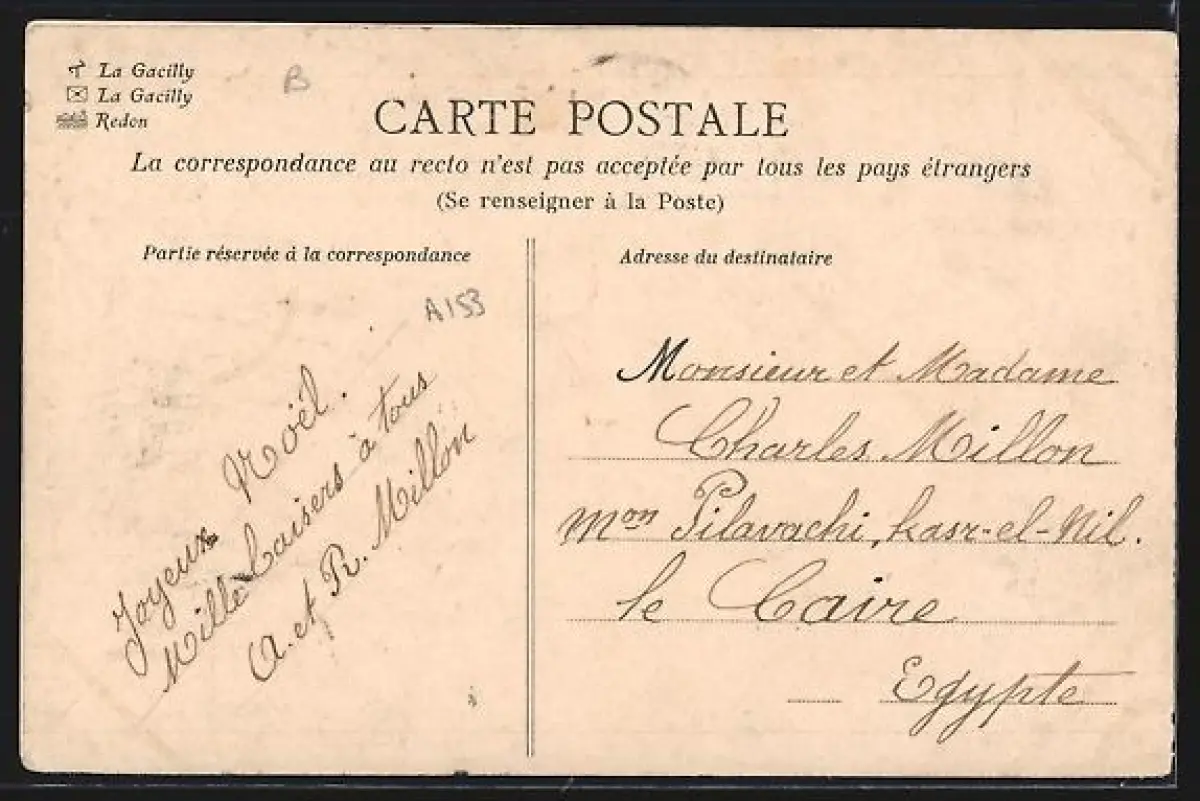 La Gacilly
La Gacilly
Redon
B
CARTE POSTALE
La correspondance au recto n'est pas acceptée par tous les pays étrangers
(Se renseigner à la Poste)
Partie réservée à la correspondance
A153
Joyeux Noël.
Mille baisers à tous
A. et R. Millon
Adresse du destinataire
Monsieur et Madame
Charles Millon
Mon Pilavachi, Kasr-el-Nil.
le Caire
Egypte